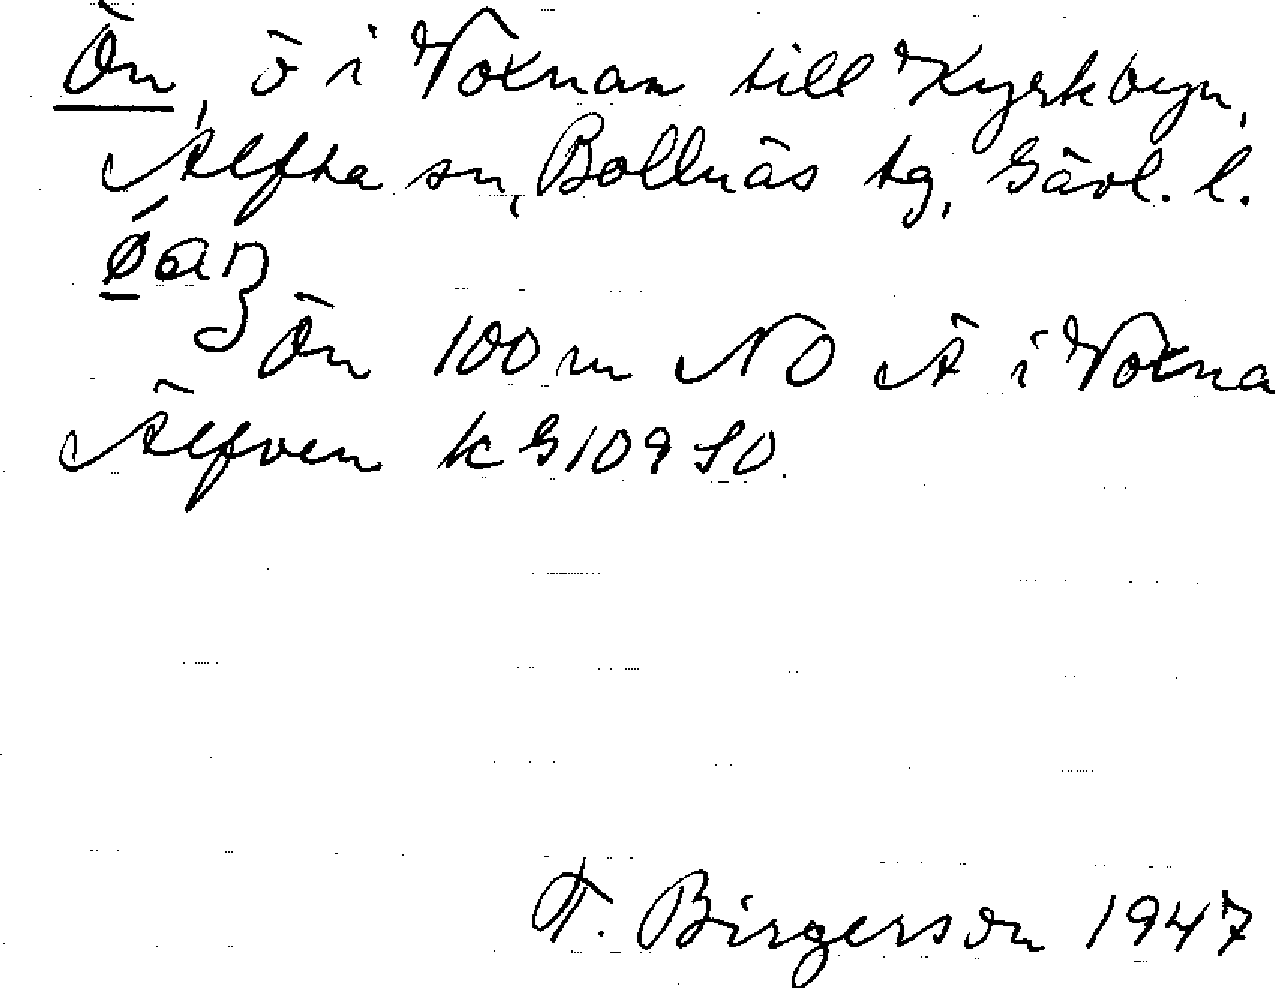 Ön, ö i Voxnan till Kyrkbyn,
Alfta sn, Bollnäs tg, Gävl. l.
Ön 100 m NO Å i Voxna
Älfven k G 109 SO.
F. Birgerson 1947